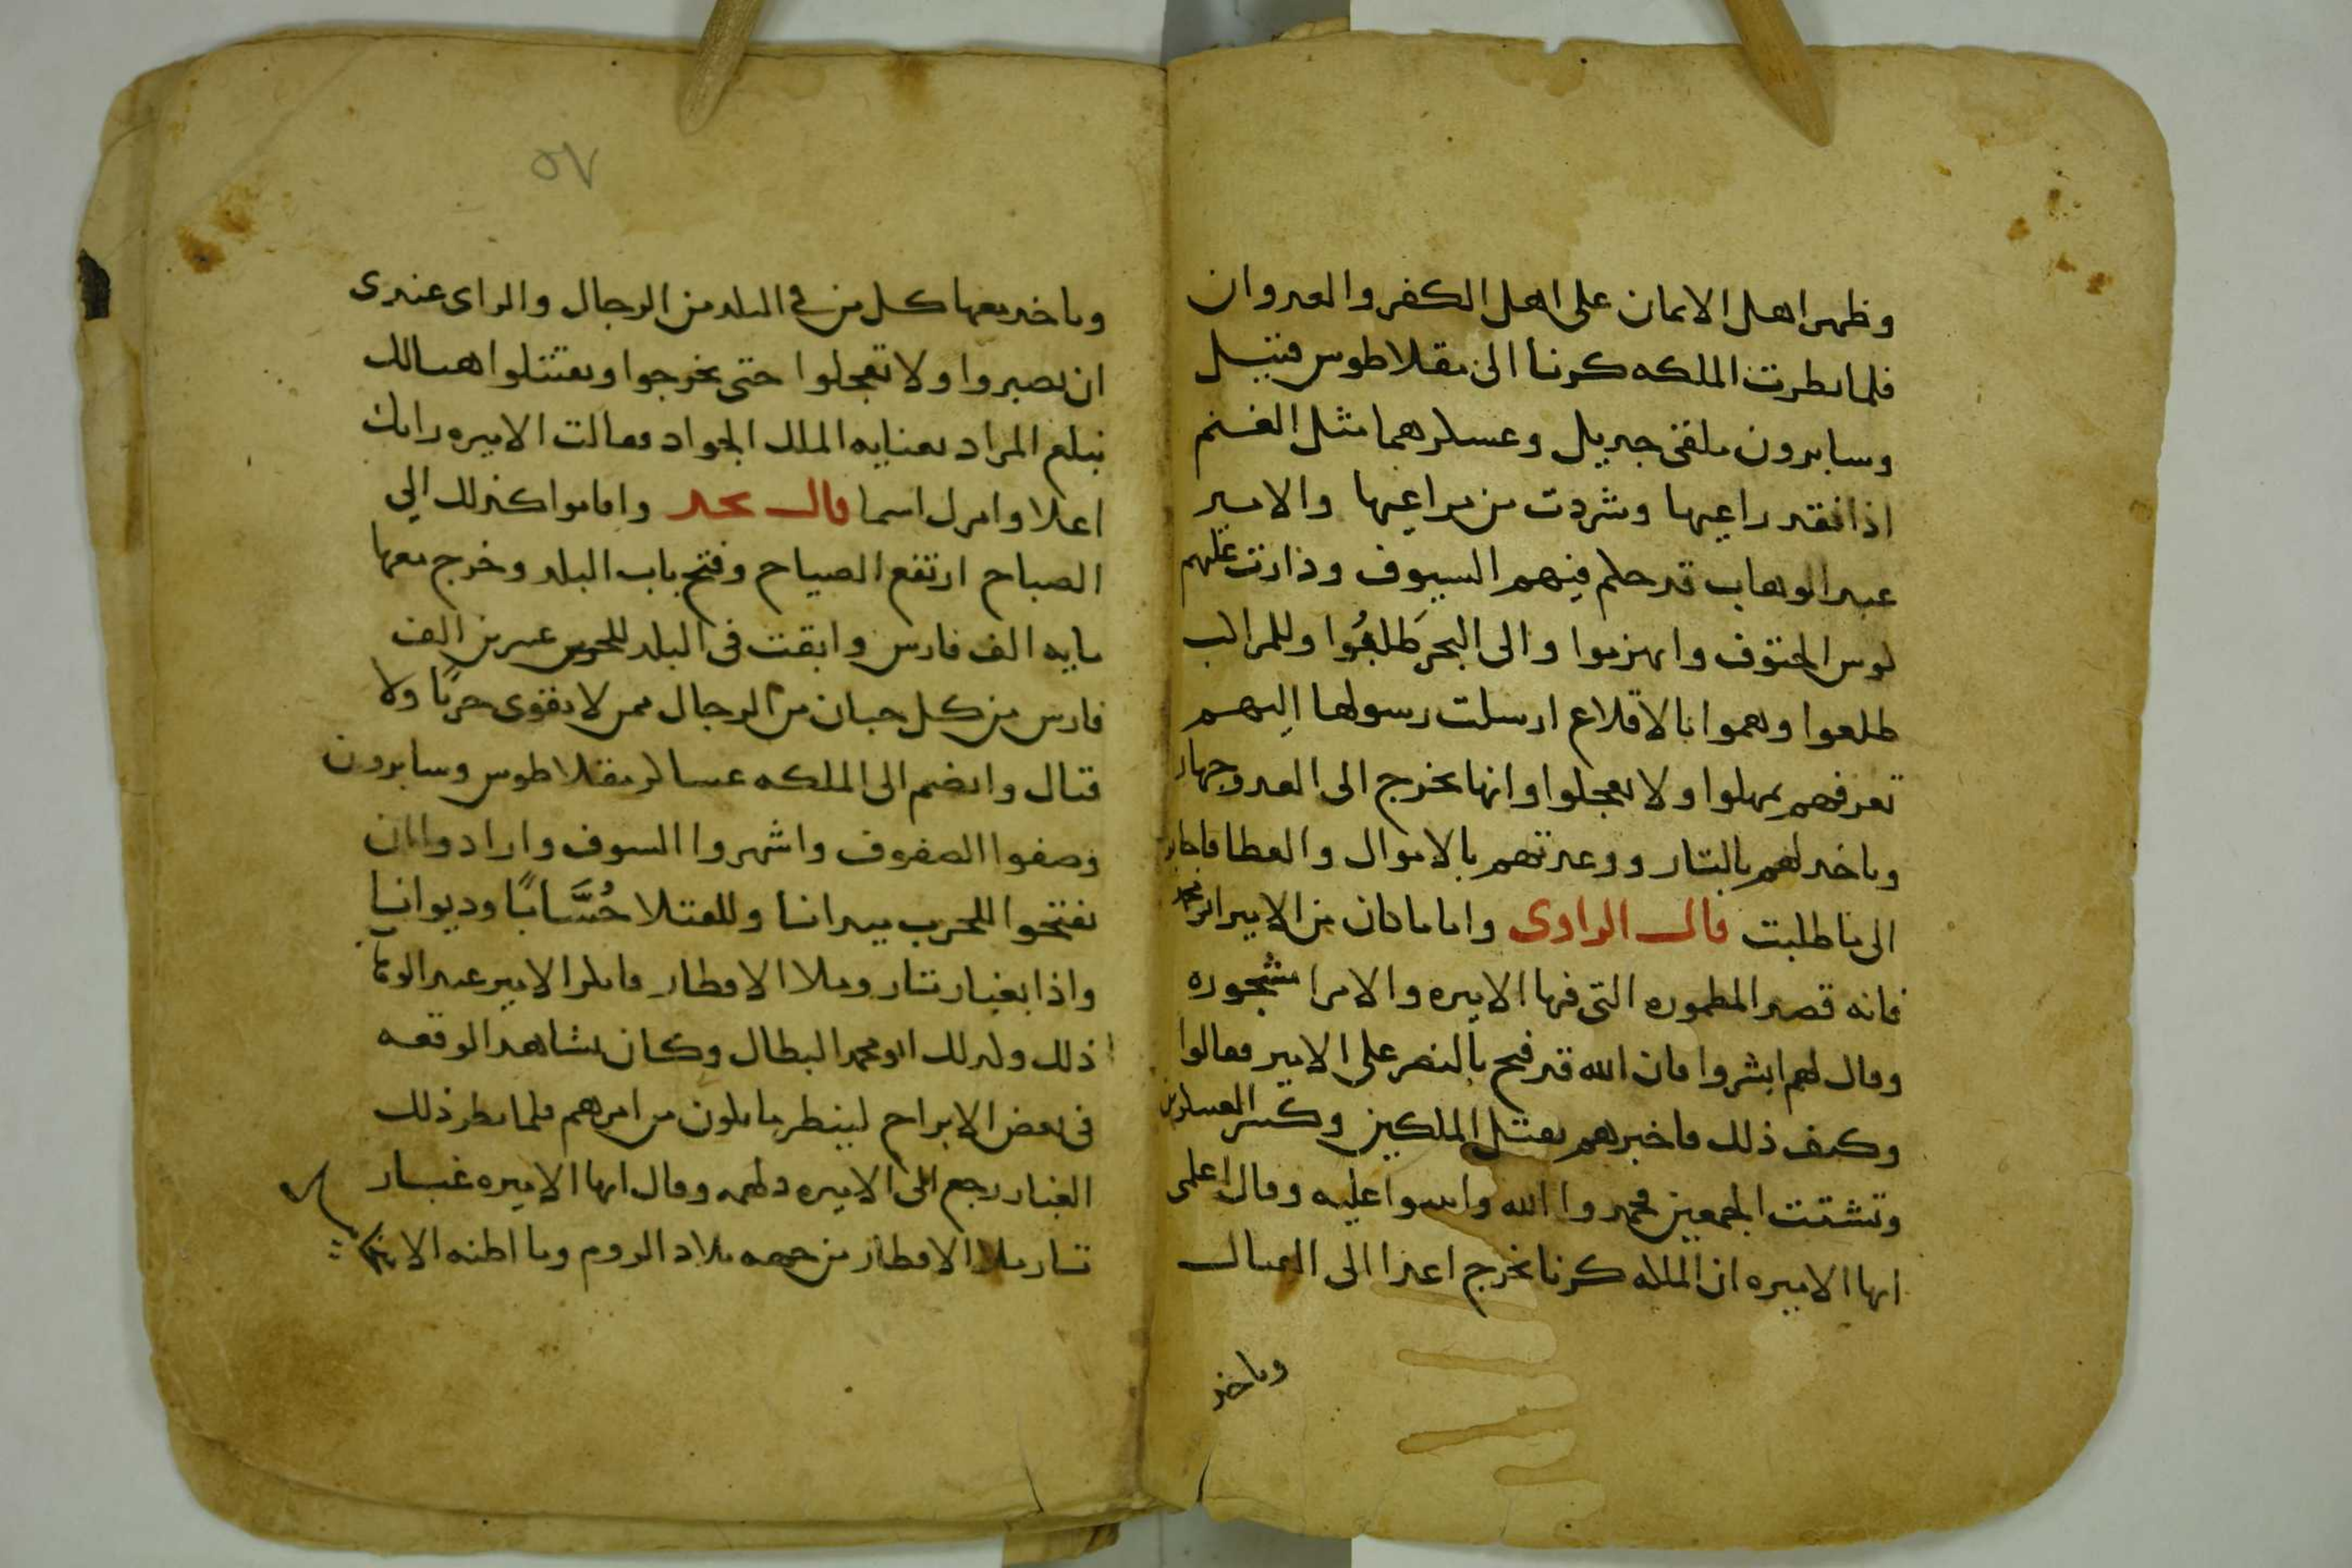 وظهر اهل الايمان على اهل الكفر والعدوان
فلما نظرت الملكه كرنا الى مقلاطوس قتيل
وسابرون ملقى جديل وعسكرهما مثل الغنم
اذا فقد راعيها وشردت من مراعيها والامير
عبد الوهاب قد حكم فيهم السيوف ودارت عليهم
كوس الحتوف وانهزموا والى البحر طلبوا وللمراكب
طلعوا وهموا بالاقلاع ارسلت رسولها اليهم
تعرفهم يمهلوا ولا يعجلوا وانها تخرج الى العدو جهار
وتاخد لهم بالتار ووعدتهم بالاموال والعطا فاجابوا
الى ما طلبت قال الراوى واما ما كان من الامير ابو محمد
فانه قصد المطموره التى فيها الاميره والامرا مشجوره
وقال لهم ابشروا فان الله قد فتح بالنصر على الامير فقالوا
وكيف ذلك فاخبرهم بقتل الملكين وكسر العسكرين
وتشتت الجمعين فحمدوا الله واثنوا عليه وقال اعلمى
ايها الاميره ان الملكه كرنا تخرج غدا الى القتال
وتاخد
٥٧
وتاخد معها كل من فى البلد من الرجال والراى عندى
ان تصبروا ولا تعجلوا حتى يخرجوا ويقتتلوا هنالك
نبلغ المراد بعنايه الملك الجواد فقالت الاميره رايك
اعلا وامرك اسما قال نجد واقاموا كذلك الى
الصباح ارتفع الصياح وفتح باب البلد وخرج معها
مايه الف فارس وابقت فى البلد للحرس عشرين الف
فارس من كل جبان من الرجال ممن لا يقوى حربًا ولا
قتال وانضم الى الملكه عساكر مقلاطوس وسابرون
وصفوا الصفوف واشهروا السيوف وارادوا ان
يفتحوا للحرب ميدانا وللقتلا حُسَّابًا وديوانا
واذا بغبار تار وملا الاقطار فانكر الامير عبد الوهاب
ذلك وكذلك ابو محمد البطال وكان يشاهد الوقعه
فى بعض الابراج لينظر ما يكون من امرهم فلما نظر ذلك
الغبار رجع الى الاميره دلهمه وقال ايها الاميره غبار
تار ملا الاقطار من جهه بلاد الروم وما اظنه الا